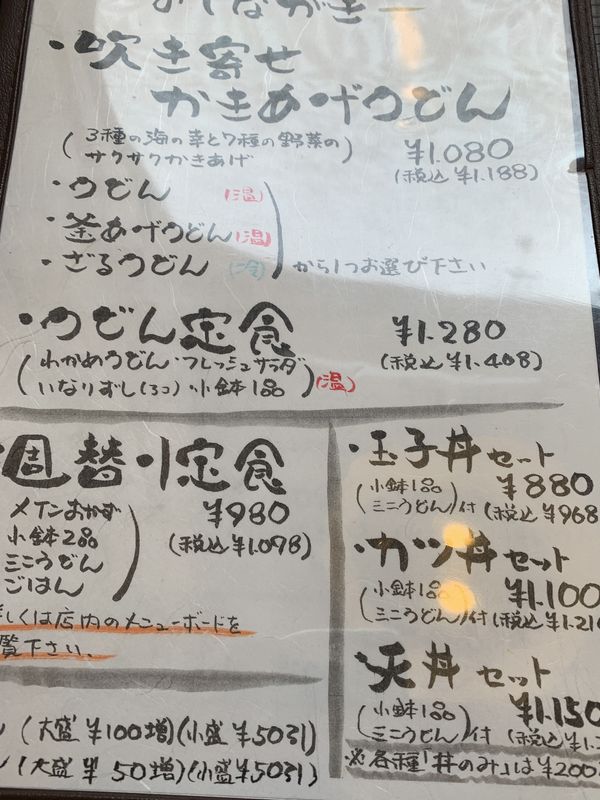 おしながき
・吹き寄せ
かきあげうどん
(3種の海の幸と7種の野菜の
サクサクかきあげ)
¥1.080
(税込 ¥1.188)
・うどん (温)
・釜あげうどん (温)
・ざるうどん (冷)
から1つお選び下さい
・うどん定食 ¥1.280
(税込 ¥1.408)
(わかめうどん・フレッシュサラダ
いなりずし(3コ)・小鉢1品) (温)
週替り定食
メインおかず
小鉢2品
ミニうどん
ごはん
¥980
(税込 ¥1.098)
しくは店内のメニューボードを
覧下さい。
(大盛 ¥100増)(小盛 ¥50引)
(大盛 ¥50増)(小盛 ¥50引)
・玉子丼セット
(小鉢1品
ミニうどん)付
¥880
(税込 ¥968
・カツ丼セット
(小鉢1品
ミニうどん)付
¥1.100
(税込 ¥1.210
・天丼セット
(小鉢1品
ミニうどん)付
¥1.150
(税込 ¥1.
※各種「丼のみ」は¥200